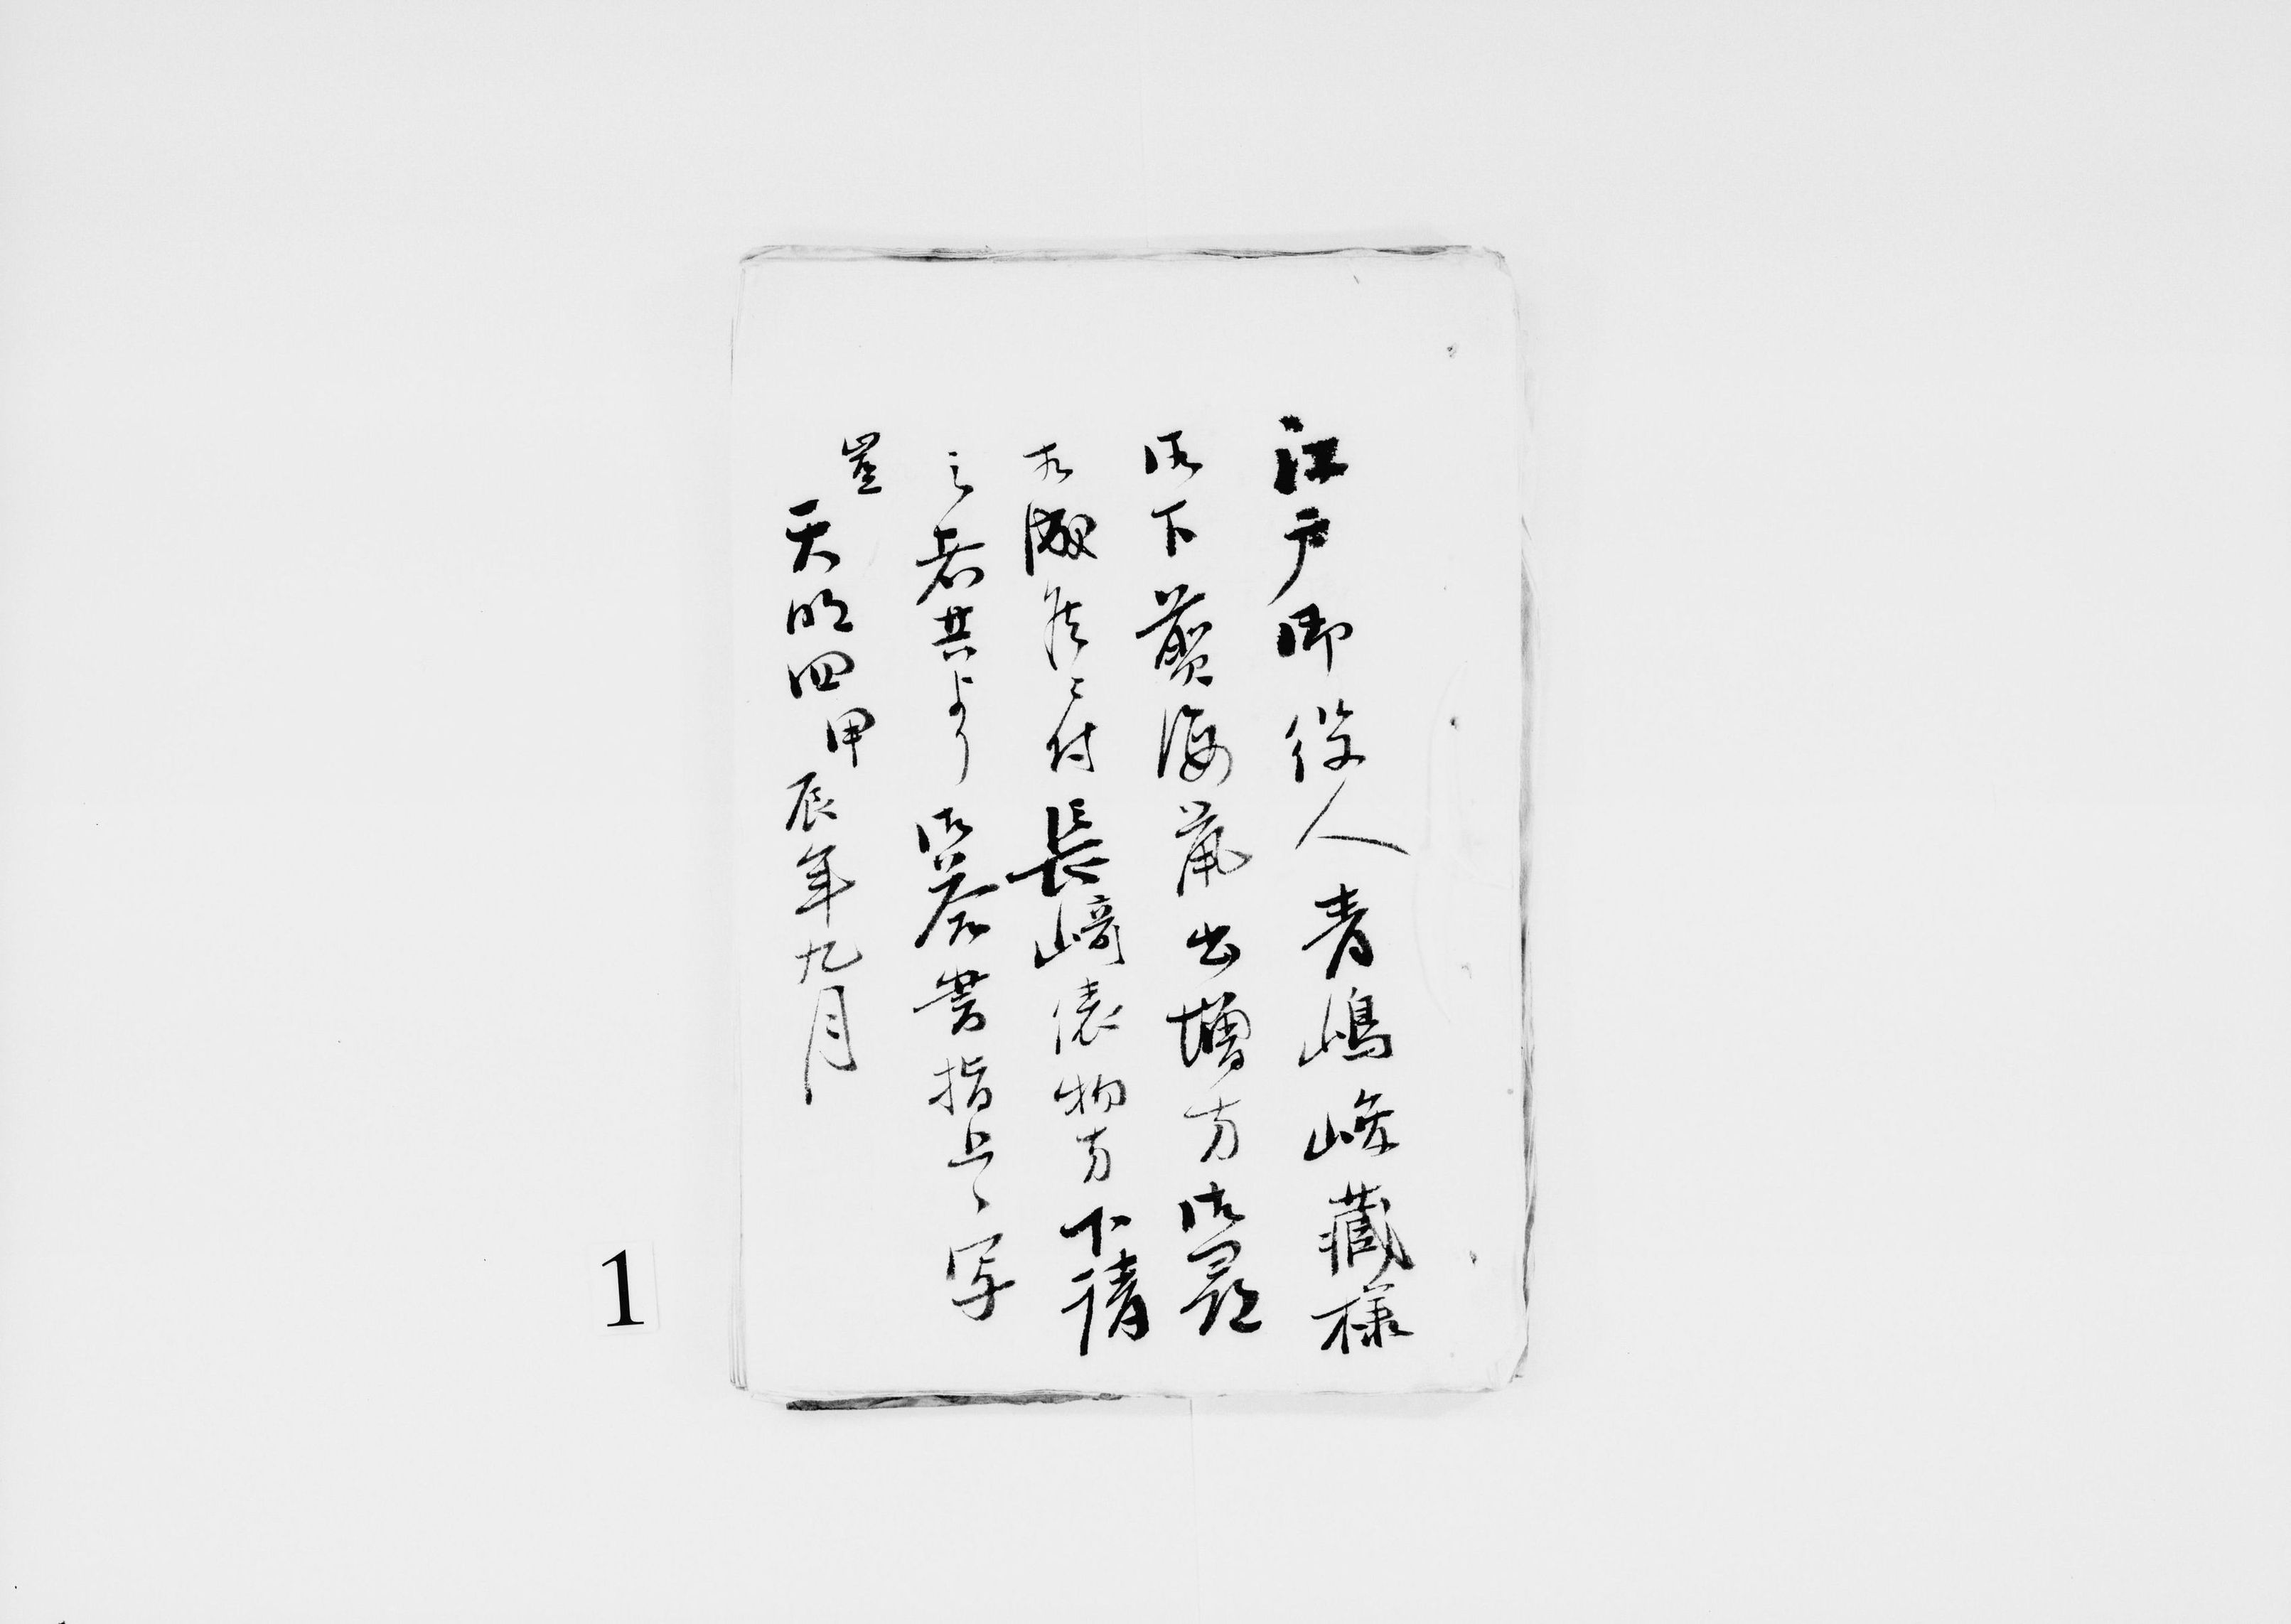 江戸御役人青嶋峰蔵様
御下煎海鼠出増方御尋
被成候ニ付長崎俵物方下請
之者共より御答書指上ヶ写
天明四甲辰年九月
1